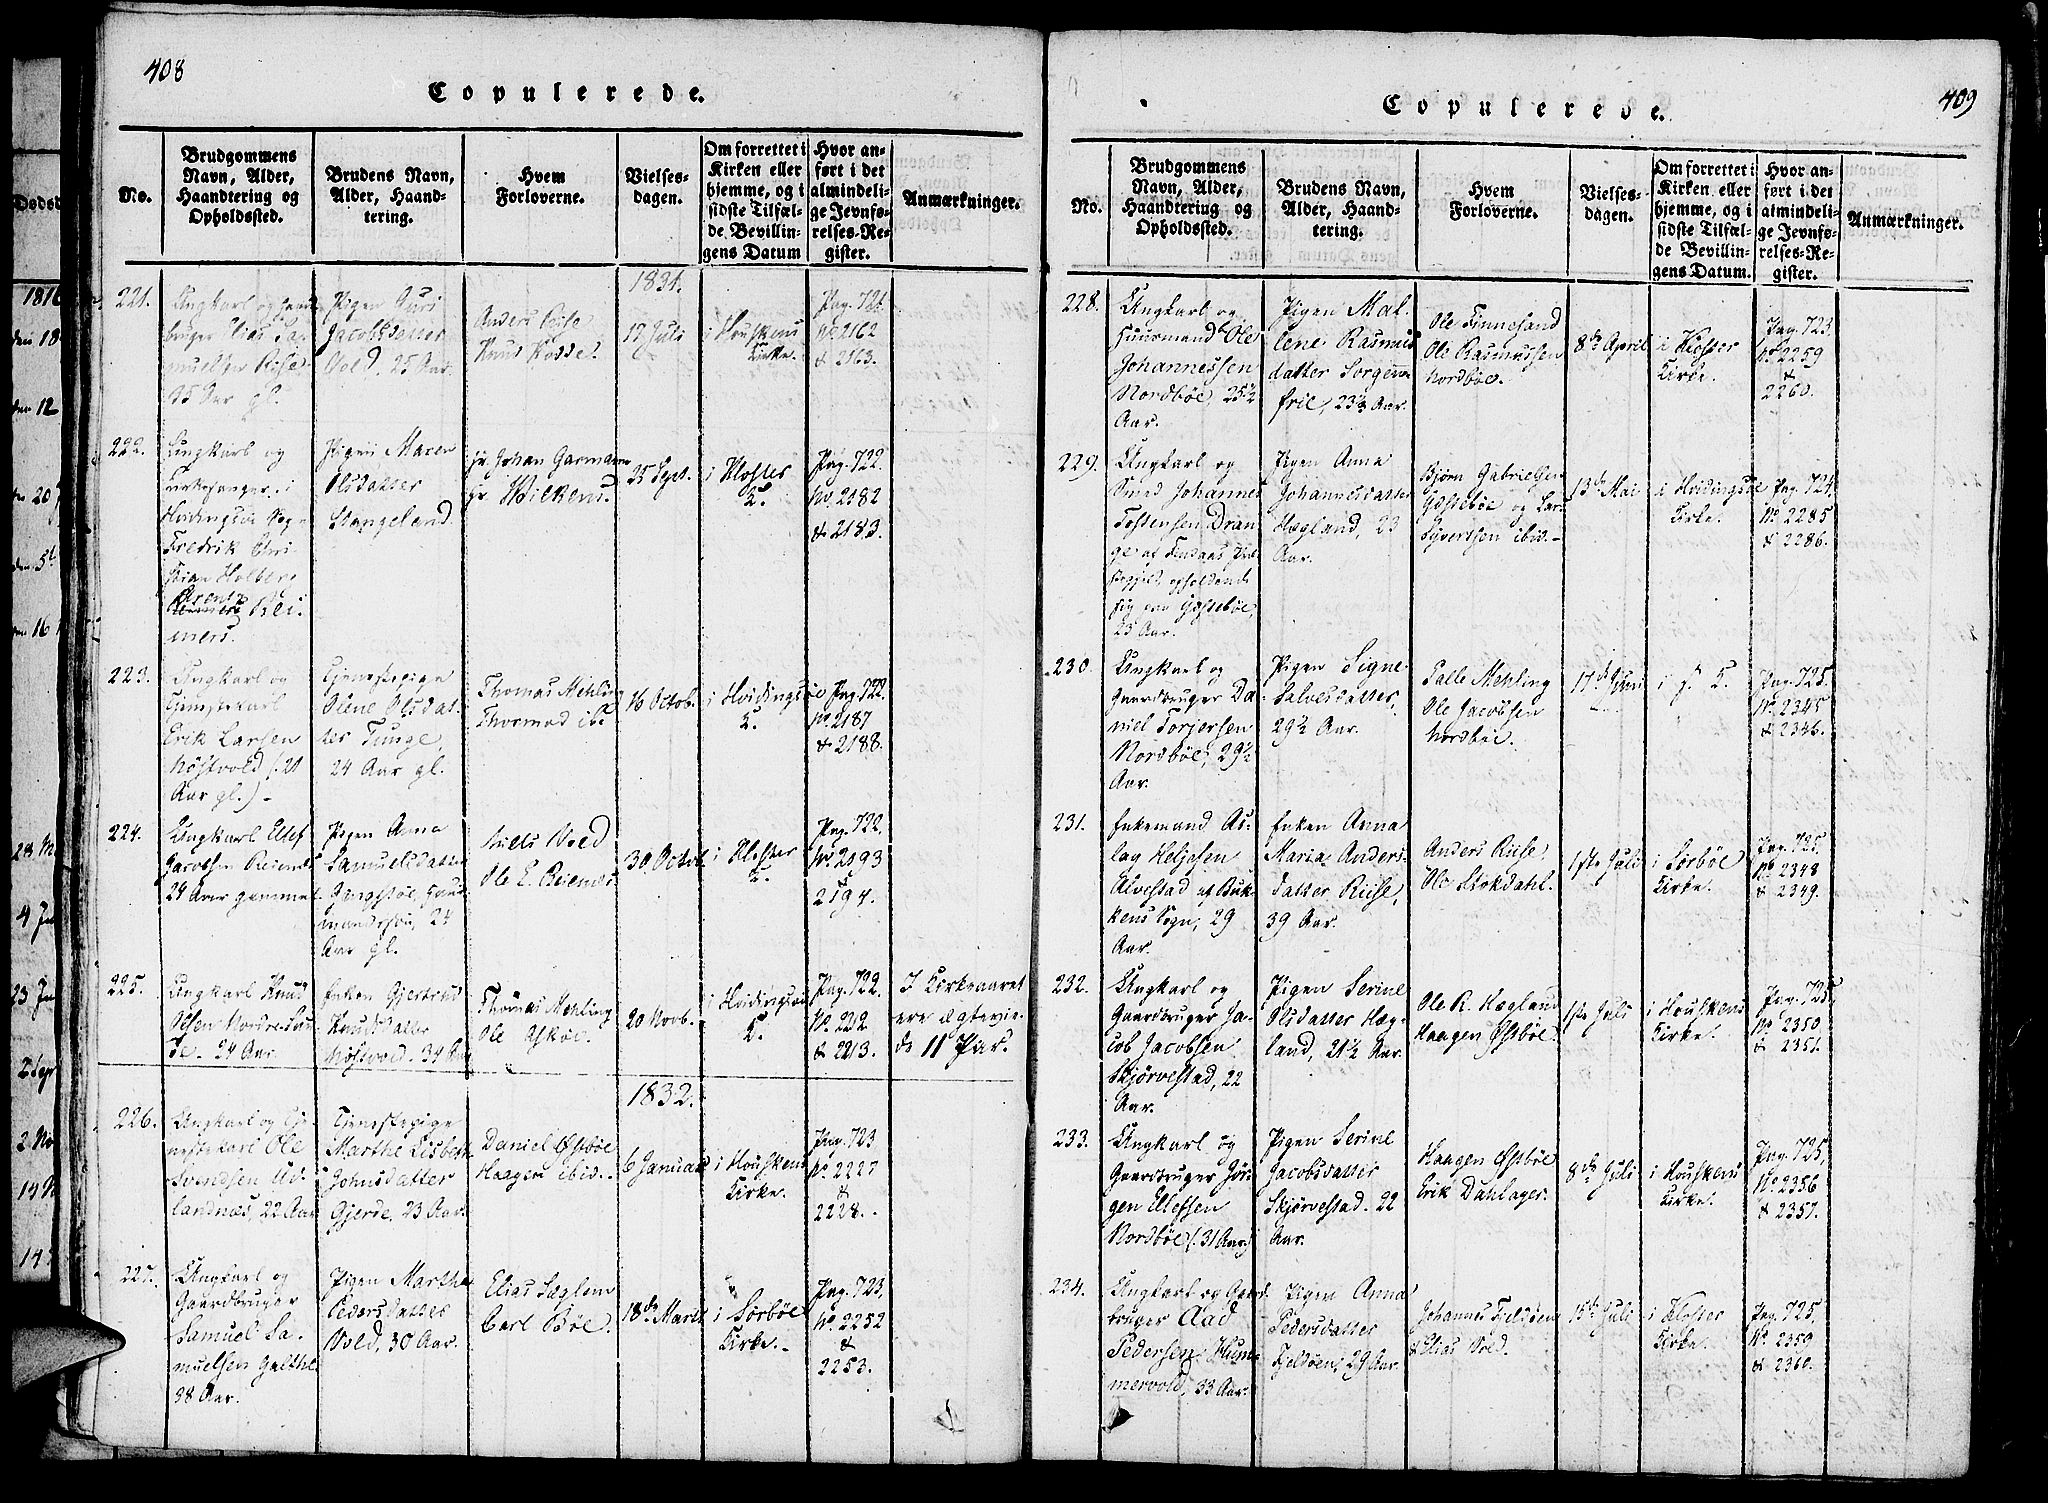 408
Copulerede.
No.
Brudgommens
Navn, Alder,
Haandtering og
Opholdssted.
Brudens Navn,
Alder, Haand-
tering.
Hvem
Forloverne.
Vielses-
dagen.
Om forrettet i
Kirken eller
hjemme, og i
sidste Tilfæl-
de Bevillin-
gens Datum
Hvor an-
ført i det
almindeli-
ge Jevnfø-
relses-Re-
gister.
Anmærkninger.
1831.
221.
Ungkarl og
bruger Elias Sa-
muelsen Riise
Aar gl.
Pigen Guri
Jacobsdatter
Vold, 25 Aar.
Anders Riise
Knud
17 Juli
i Houskens
Kirke.
Pag. 721.
No 2162
& 2163.
222.
Ungkarl og
Kirkesanger i
Hvidingsøe Sog-
Fredrik Chri-
stian Holber
Arentz
Rei-
mers.
Pigen Maren
Olsdatter
Stangeland.
Hr. Johan Garmann
Hr. Wilkens.
25 Sept.
i Kloster
K.
Pag. 722.
No. 2182
& 2183.
223.
Ungkarl og
Tjenestekarl
Erik Larsen
Nøstvold (: 21
Aar gl.) -
Tjenestepige
Oline Olsdat-
ter Tunge,
24 Aar gl.
Thomas Mehling
Thormod ibi
16 Octob.
i Hvidingsøe
K.
Pag. 722.
No. 2187
& 2188.
224.
Ungkarl Ellef
Jacobsen Reimers
24 Aar gammel
Pigen Anna
Samuelsdatter
24
Aar gl.
Niels Vold
Ole E. Reimers
30 Octob
i Kloster
K.
Pag. 722.
No. 2193
&
2194.
225.
Ungkarl Knud
Olsen
24 Aar.
Enken Gjertrud
Knudsdatter
Nøstvold. 34 Aar
Thomas Mehling
Ole Askøe.
20 Novb.
i Hvidingsøe
K.
Pag. 722.
No. 2212
& 2213.
I Kirkeaaret
ere ægtevie-
de 11 Par.
1832.
226.
Ungkarl og Tje-
nestekarl Ole
Svendsen Ud-
landnæs, 22 Aar
Tjenestepige
Marthe Lisbeth
Johnsdatter
Gjerde, 23 Aar.
Daniel Østbøe
Haagen ibid.
6 Januar
i Houskens
Kirke.
Pag. 723
No. 2227
&
2228.
227.
Ungkarl og
Gaardbruger
Samuel Sa-
muelsen Galthe
38 Aar.
Pigen Marthe
Pedersdatter
Vold, 30 Aar.
Elias Sæglem
Carl Bøe.
18de Marts
i Sørbøe
Kirke.-
Pag. 723,
No. 2252
&
2253.
409
Copulerede.
No.
Brudgommens
Navn, Alder,
Haandtering og
Opholdssted.
Brudens Navn,
Alder, Haand-
tering.
Hvem
Forloverne.
Vielses-
dagen.
Om forrettet i
Kirken eller
hjemme, og i
sidste Tilfæl-
de Bevillin-
gens Datum.
Hvor an-
ført i det
almindeli-
ge Jevnfø-
relses-Re-
gister.
Anmærkninger.
228.
Ungkarl og
Huusmand Ole
Johannessen
Nordbøe, 25½
Aar.
Pigen Mal-
lene Rasmus
datter Sorgen-
frie, 23½ Aar.
Ole Finnesand
Ole Rasmussen
Nordbøe.
8de April
i Kloster
Kirke.
Pag. 723.
No 2259
&
2260.
229.
Ungkarl og
Smed Johannes
Tostensen Dran-
ge af Findaas Præ
stegjeld, opholdende
sig paa Gostebøe,
25 Aar.
Pigen Anna
Johannesdatter
Hægland, 23
Aar.
Bjørn Gabrielsen
Gostebøe og Lar-
Syvertsen ibid.-
13de Mai
i Hvidingsøe
Kirke.
Pag. 724.
No. 2285
& 2286.
230.
Ungkarl og
Gaardbruger Da
niel Torjersen
Nordbøe, 29½
Aar.
Pigen Signe
Salvesdatter,
29½ Aar.
Palle Mehling
Ole Jacobsen
Nordbøe.
17de Juni
i s. K.
Pag. 725.
No. 2345
& 2346.
231.
Enkemand As-
lag Heljesen
Alvestad af Buk-
kens Sogn, 29
Aar.
Enken Anna
Maria Anders-
datter Riise,
39 Aar.
Anders Riise.
Ole Stokdahl.
1ste Juli
i Sørbøe
Kirke.
Pag. 725.
No 2348
& 2349.
232.
Ungkarl og
Gaardbruger Ja-
cob Jacobsen
Skjørvestad, 22
Aar.
Pigen Serine
Olsdatter Hæg-
land, 21½ Aar.
Ole R. Hægland
Haagen Østbøe.
1ste Juli
i Houskens
Kirke.
Pag. 725,
No 2350.
& 2351.
233.
Ungkarl og
Gaardbruger Jør-
gen Ellefsen
Nordbøe (: 31 Aar.)
Pigen Serine
Jacobsdatter
Skjørvestad. 22
Aar.
Haagen Østbøe
Erik Dahlager.
8de Juli
i Houskens
Kirke.
Pag. 725,
No. 2356
& 2357.
234.
Ungkarl og Gaard-
bruger Aad
Pedersen Hum-
mervold, 33 Aar.
Pigen Anna
Pedersdatter
Fjeldøen, 29 Aar.
Johannes Fjeldøen
& Elias Vold.
15de Juli
i Kloster
Kirke.
Pag. 725,
No. 2359
& 2360.